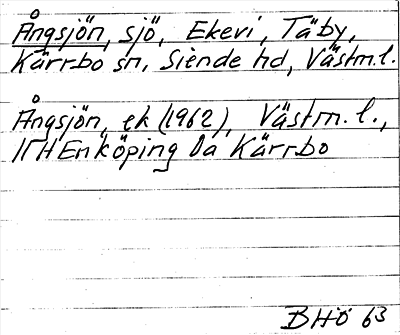 Ångsjön, sjö, Ekevi, Täby,
Kärrbo sn, Siende hd, Västm.l.
Ångsjön, ek (1962), Västm. l.,
11 H Enköping 0a Kärrbo
BHÖ 63